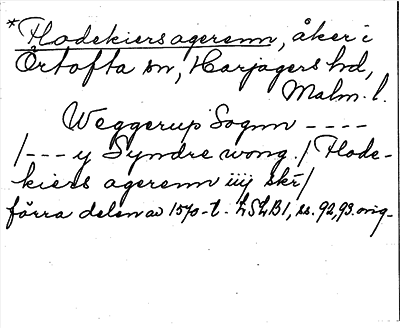 *Flodekiers agerenn, åker i
Örtofta sn, Harjagers hd,
Malm. l.
Weggerup Sognn ----
/--- y Syndre wong. / Flode-
kiers agerenn iiij skr/
förra delen av 1570-t. LSLB1, ss. 92, 93. orig.